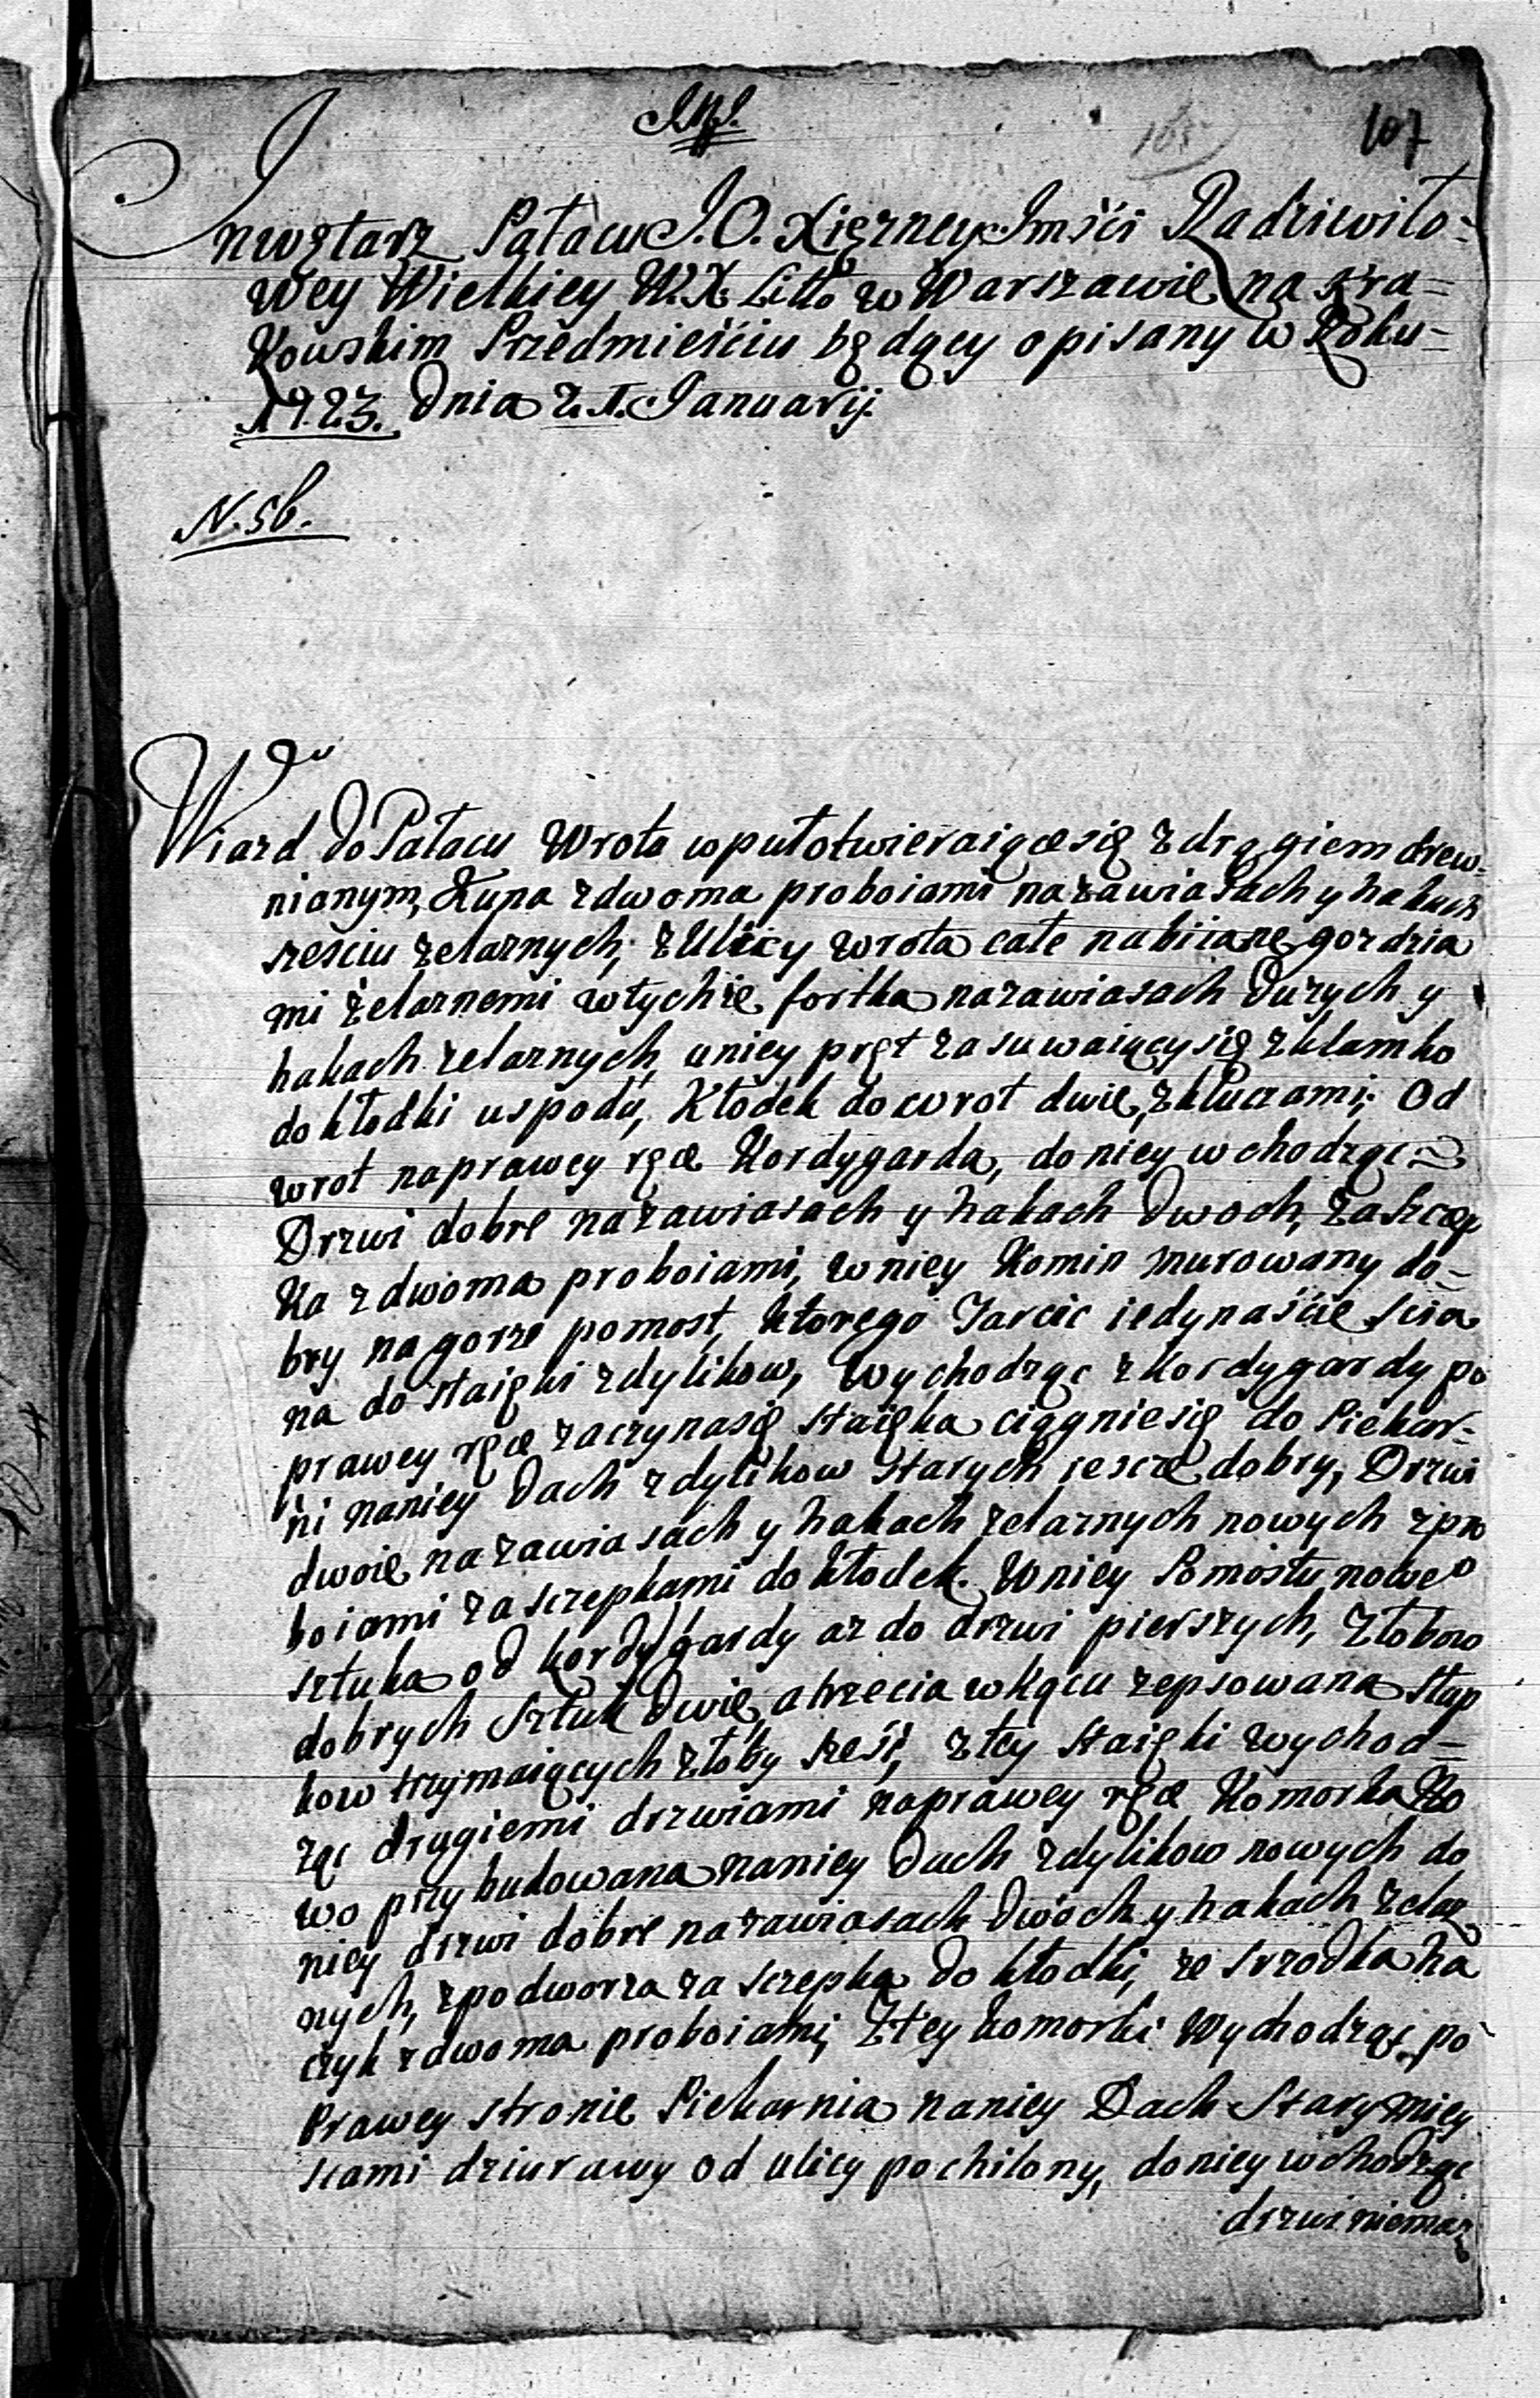 107
Inwętarz Pałacu J. O. Xiężney Jmści Radziwiło=
wey Wielkiey W. X. Litto w Warszawie na Kra=
kowskim Przedmieściu będący opisany w Roku=
1723. Dnia 2.1. Januarij.
N. 56.
Wiazd do Pałacu Wrota wpuł otwieraiące się z drągiem drew=
nianym, Kuna zdwoma proboiami na zawiasach y hakach
sześciu żelaznych, z Ulicy wrota całe nabiiane gozdzia
mi żelaznemi wtychże fortka na zawiasach Duzych y
hakach zelaznych, uniey pręt zasuwaiący się zklamko
do kłodki uspodu, Kłodek do wrot dwie, zkluczami; Od
wrot na prawey ręce Kordygarda, do niey wchodząc
Drzwi dobre na zawiasach y hakach Dwoch, Zasczep
ka z dwoma proboiami, w niey Komin murowany do=
bry na gorze pomost, ktorego Tarcic iedynaście scia
na do staięki zdylikow, Wychodząc z kordygardy po
prawey ręce zaczyna się staięka ciągnie się do Piekar=
ni naniey Dach zdylikow starych iescze dobry, Drzwi
dwoie na zawiasach y hakach żelaznych nowych zpro
boiami zasczepkami do kłodek. Wniey Pomostu noweo
sztuka od kordygardy az do drzwi pierszych, Złobow
dobrych Sztuk Dwie, a trzecia wkącu zepsowana Słup
kow trzymaiących złoby sześć, z tey staięki wychod=
ząc drugiemi drzwiami naprawey ręce Komorka No
wo przybudowana naniey Dach zdylikow nowych do
niey drzwi dobre na zawiasach Dwoch y hakach żelaz
nych, zpodworza zasczepka do kłodki, ze srzodka ha
czyk zdwoma proboiami, Ztey komorki Wychodząc po
Prawey stronie Piekarnia naniey Dach Stary miey
scami dziurawy od ulicy pochilony, doniey wchodząc
drzwi niemasz